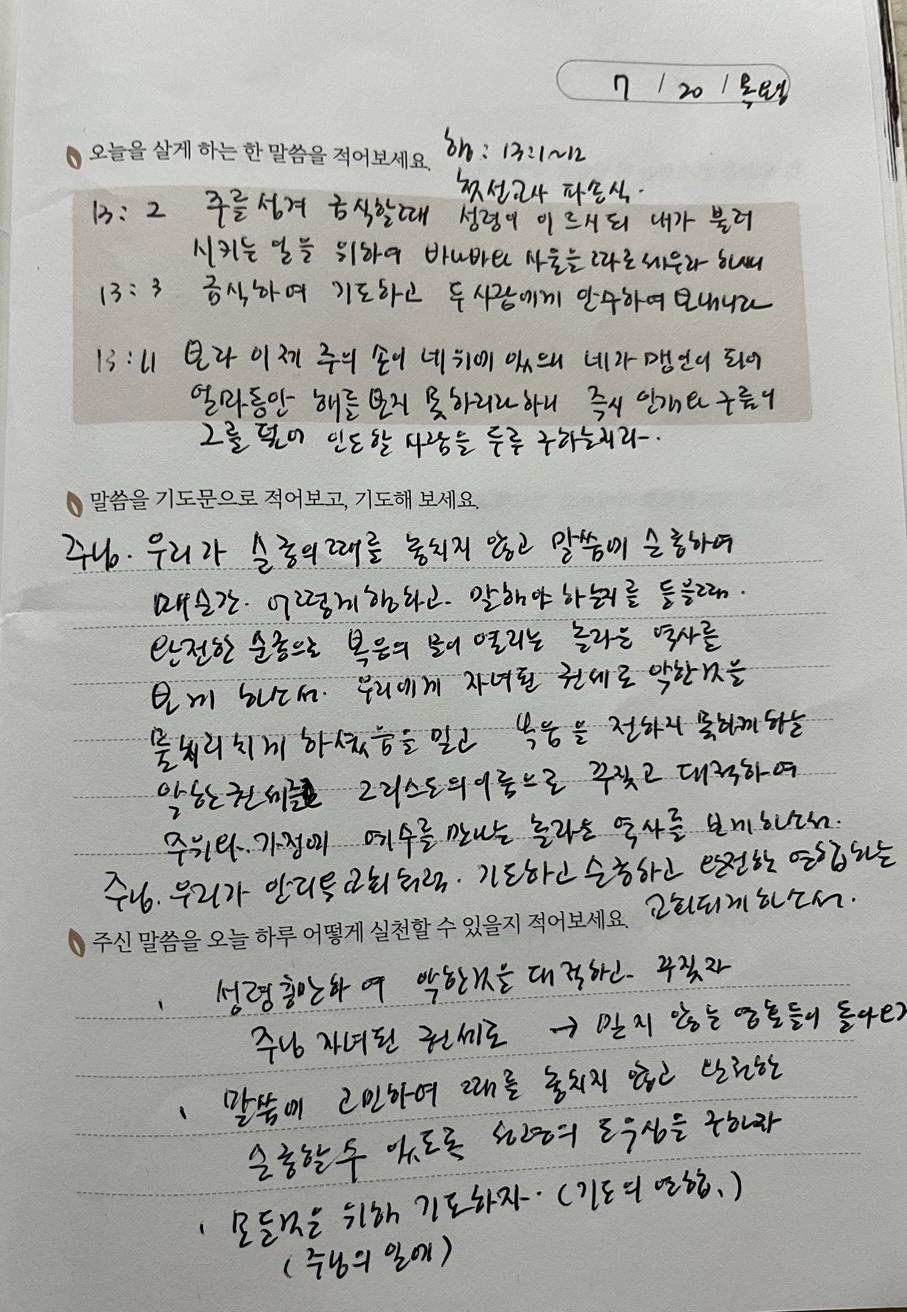 7 / 20 / 목요일
오늘을 살게 하는 한 말씀을 적어보세요. 행: 13:1~12
첫 선교사 파송식.
13: 2 주를 섬겨 금식할때 성령이 이르시되 내가 불러
시키는 일을 위하여 바나바와 사울을 따로 세우라 하시니
13: 3 금식하며 기도하고 두 사람에게 안수하여 보내니라
13:11 보라 이제 주의 손이 네 위에 있으니 네가 맹인이 되어
얼마동안 해를 보지 못하리라 하니 즉시 안개와 구름이
그를 덮어 인도할 사람을 두루 구하는지라.
말씀을 기도문으로 적어보고, 기도해 보세요.
주님. 우리가 순종의 때를 놓치지 않고 말씀에 순종하여
매순간. 어떻게 행하고. 말해야 하는지를 들을때.
완전한 순종으로 복음의 문이 열리는 놀라운 역사를
보게 하소서. 우리에게 자녀된 권세로 악한것을
물처리치게 하셨음을 믿고 복음을 전하지 못하게 하는
악한 권세를 그리스도의 이름으로 꾸짖고 대적하여
주위와. 가정에 예수를 만나는 놀라운 역사를 보게 하소서.
주님. 우리가 안디옥 교회처럼. 기도하고 순종하고 완전한 연합하는
교회되게 하소서.
주신 말씀을 오늘 하루 어떻게 실천할 수 있을지 적어보세요.
성령충만하여 악한것을 대적하고. 꾸짖자
주님 자녀된 권세로 → 믿지 않는 영혼들이 돌아오게
말씀에 고민하여 때를 놓치지 않고 완전한
순종할 수 있도록 성령의 도우심을 구하자
모든것을 위해 기도하자. (기도의 연합.)
(주님의 일에)